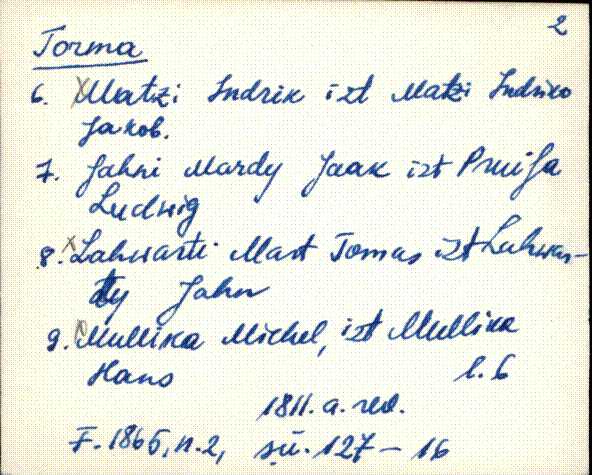 2
Torma
6. Matzi Indrik izt Matzi Indriko
Jakob.
7. Jahni Mardy Jaak izt Pruija
Ludwig
8. Lahwarti Mart Tomas izt Lahwar-
ty Jahn
9. Mullika Michel, izt Mullika
Hans l. 6
1811. a. rev.
F. 1865, n. 2, sü. 127 - 16